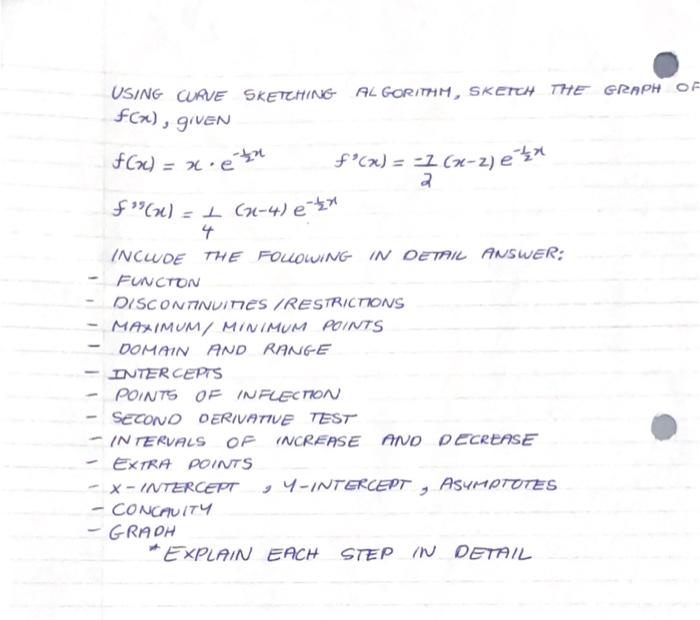 USING CURVE SKETCHING ALGORITHM, SKETCH THE GRAPH OF
f(x), gIVEN
f(x) = x · e^-½x f'(x) = -1/2 (x-2) e^-½x
f''(x) = 1/4 (x-4) e^-½x
INCLUDE THE FOLLOWING IN DETAIL ANSWER:
- FUNCTON
- DISCONTINUITIES /RESTRICTIONS
- MAXIMUM/ MINIMUM POINTS
- DOMAIN AND RANGE
- INTERCEPTS
- POINTS OF INFLECTION
- SECOND DERIVATIVE TEST
- INTERVALS OF INCREASE AND DECREASE
- EXTRA POINTS
- X-INTERCEPT , Y-INTERCEPT , ASYMPTOTES
- CONCAVITY
- GRAPH
* EXPLAIN EACH STEP IN DETAIL